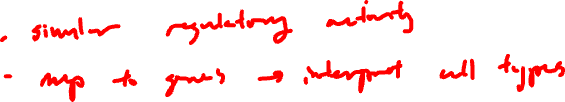 . similar regulatory activity
- map to genes → interpret cell types